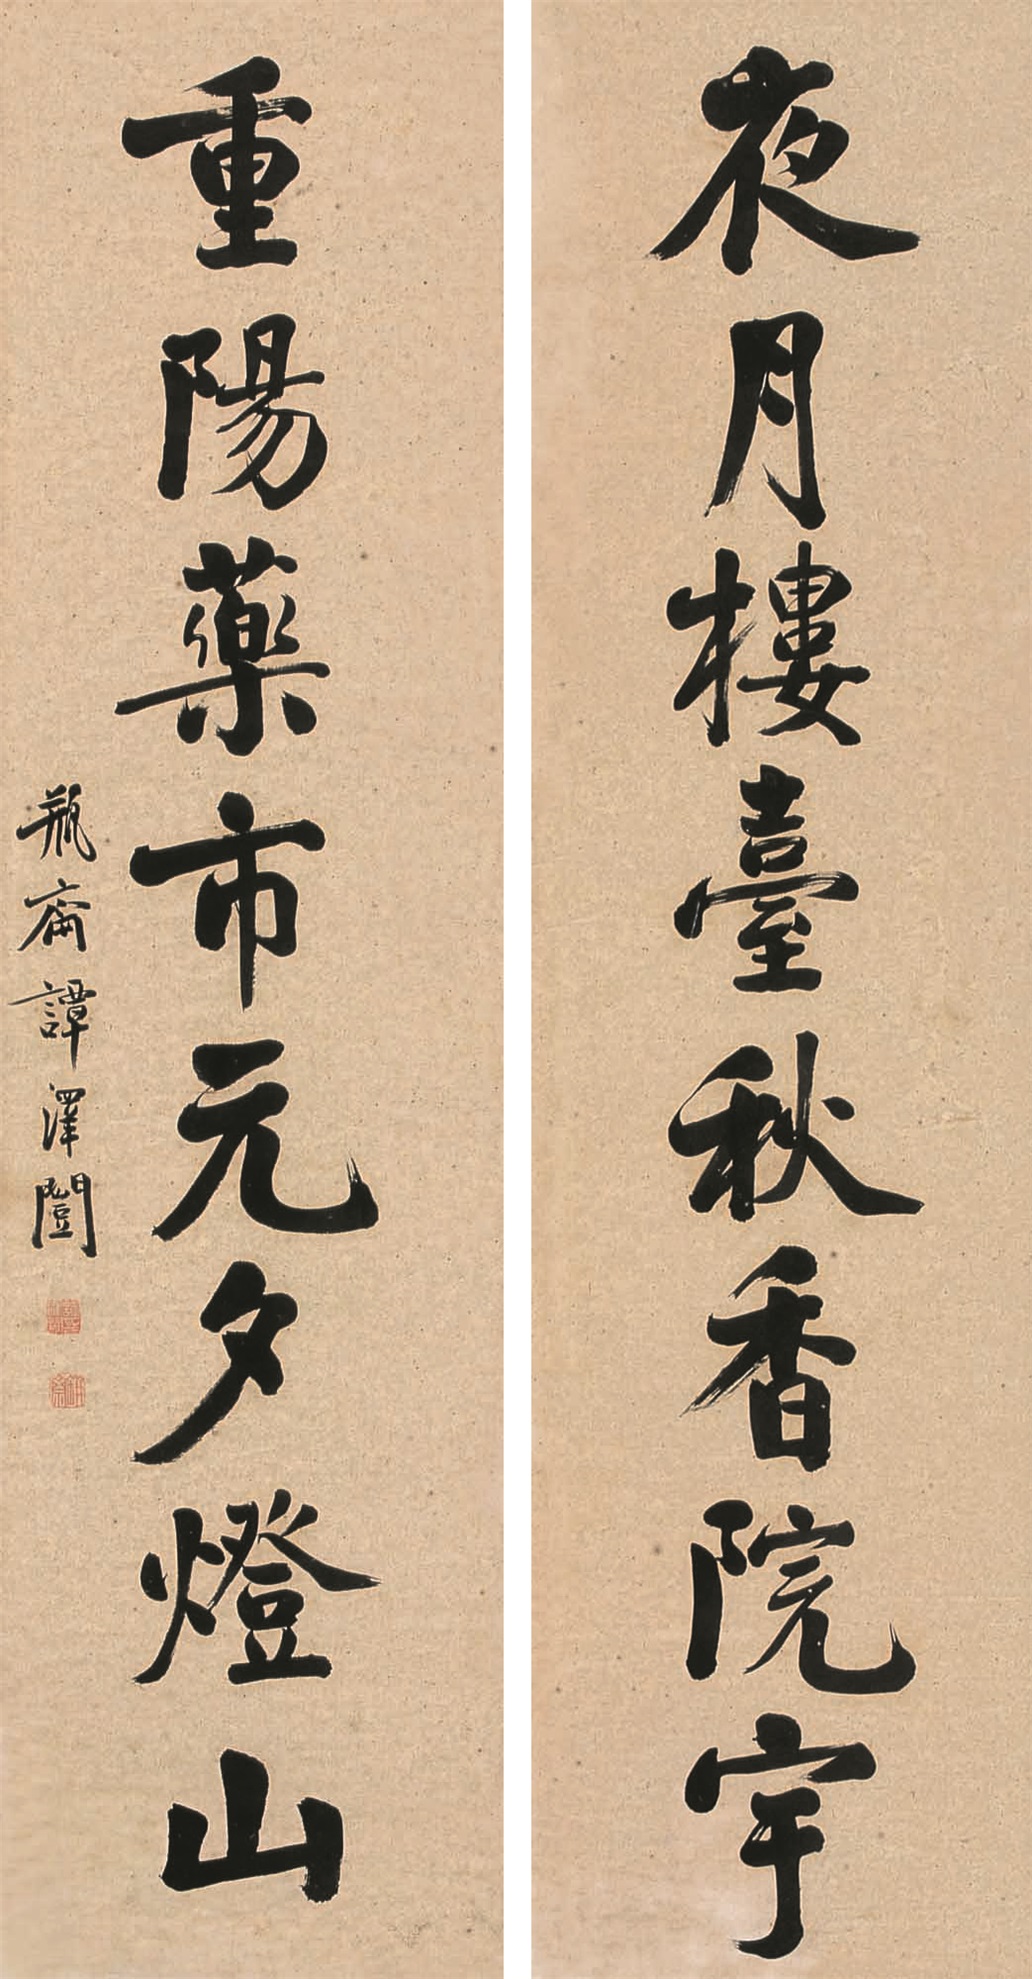 夜月樓臺秋香院宇
重陽藥市元夕燈山
瓶齋譚澤闓